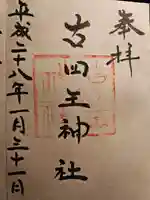 奉拝
吉田王神社
平成二十八年一月三十一日